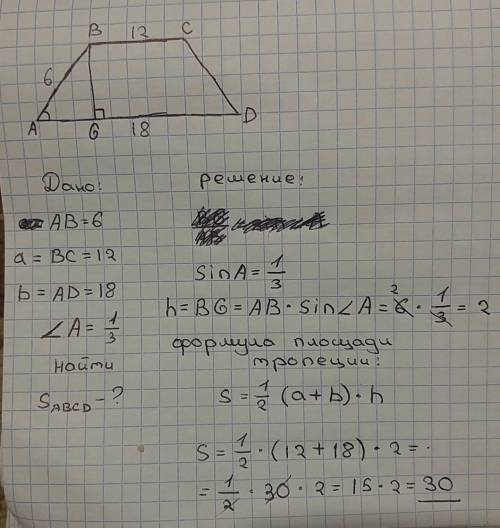 B 12 C
6
A G 18 D
Дано:
AB=6
a = BC = 12
b = AD = 18
∠A = 1/3
найти
S ABCD - ?
решение:
sin A = 1/3
h = BG = AB · sin∠A = 6 2 · 1/3 = 2
формула площади
тропеции:
S = 1/2 (a+b) · h
S = 1/2 · (12 + 18) · 2 =
= 1/2 · 30 · 2 = 15 · 2 = 30